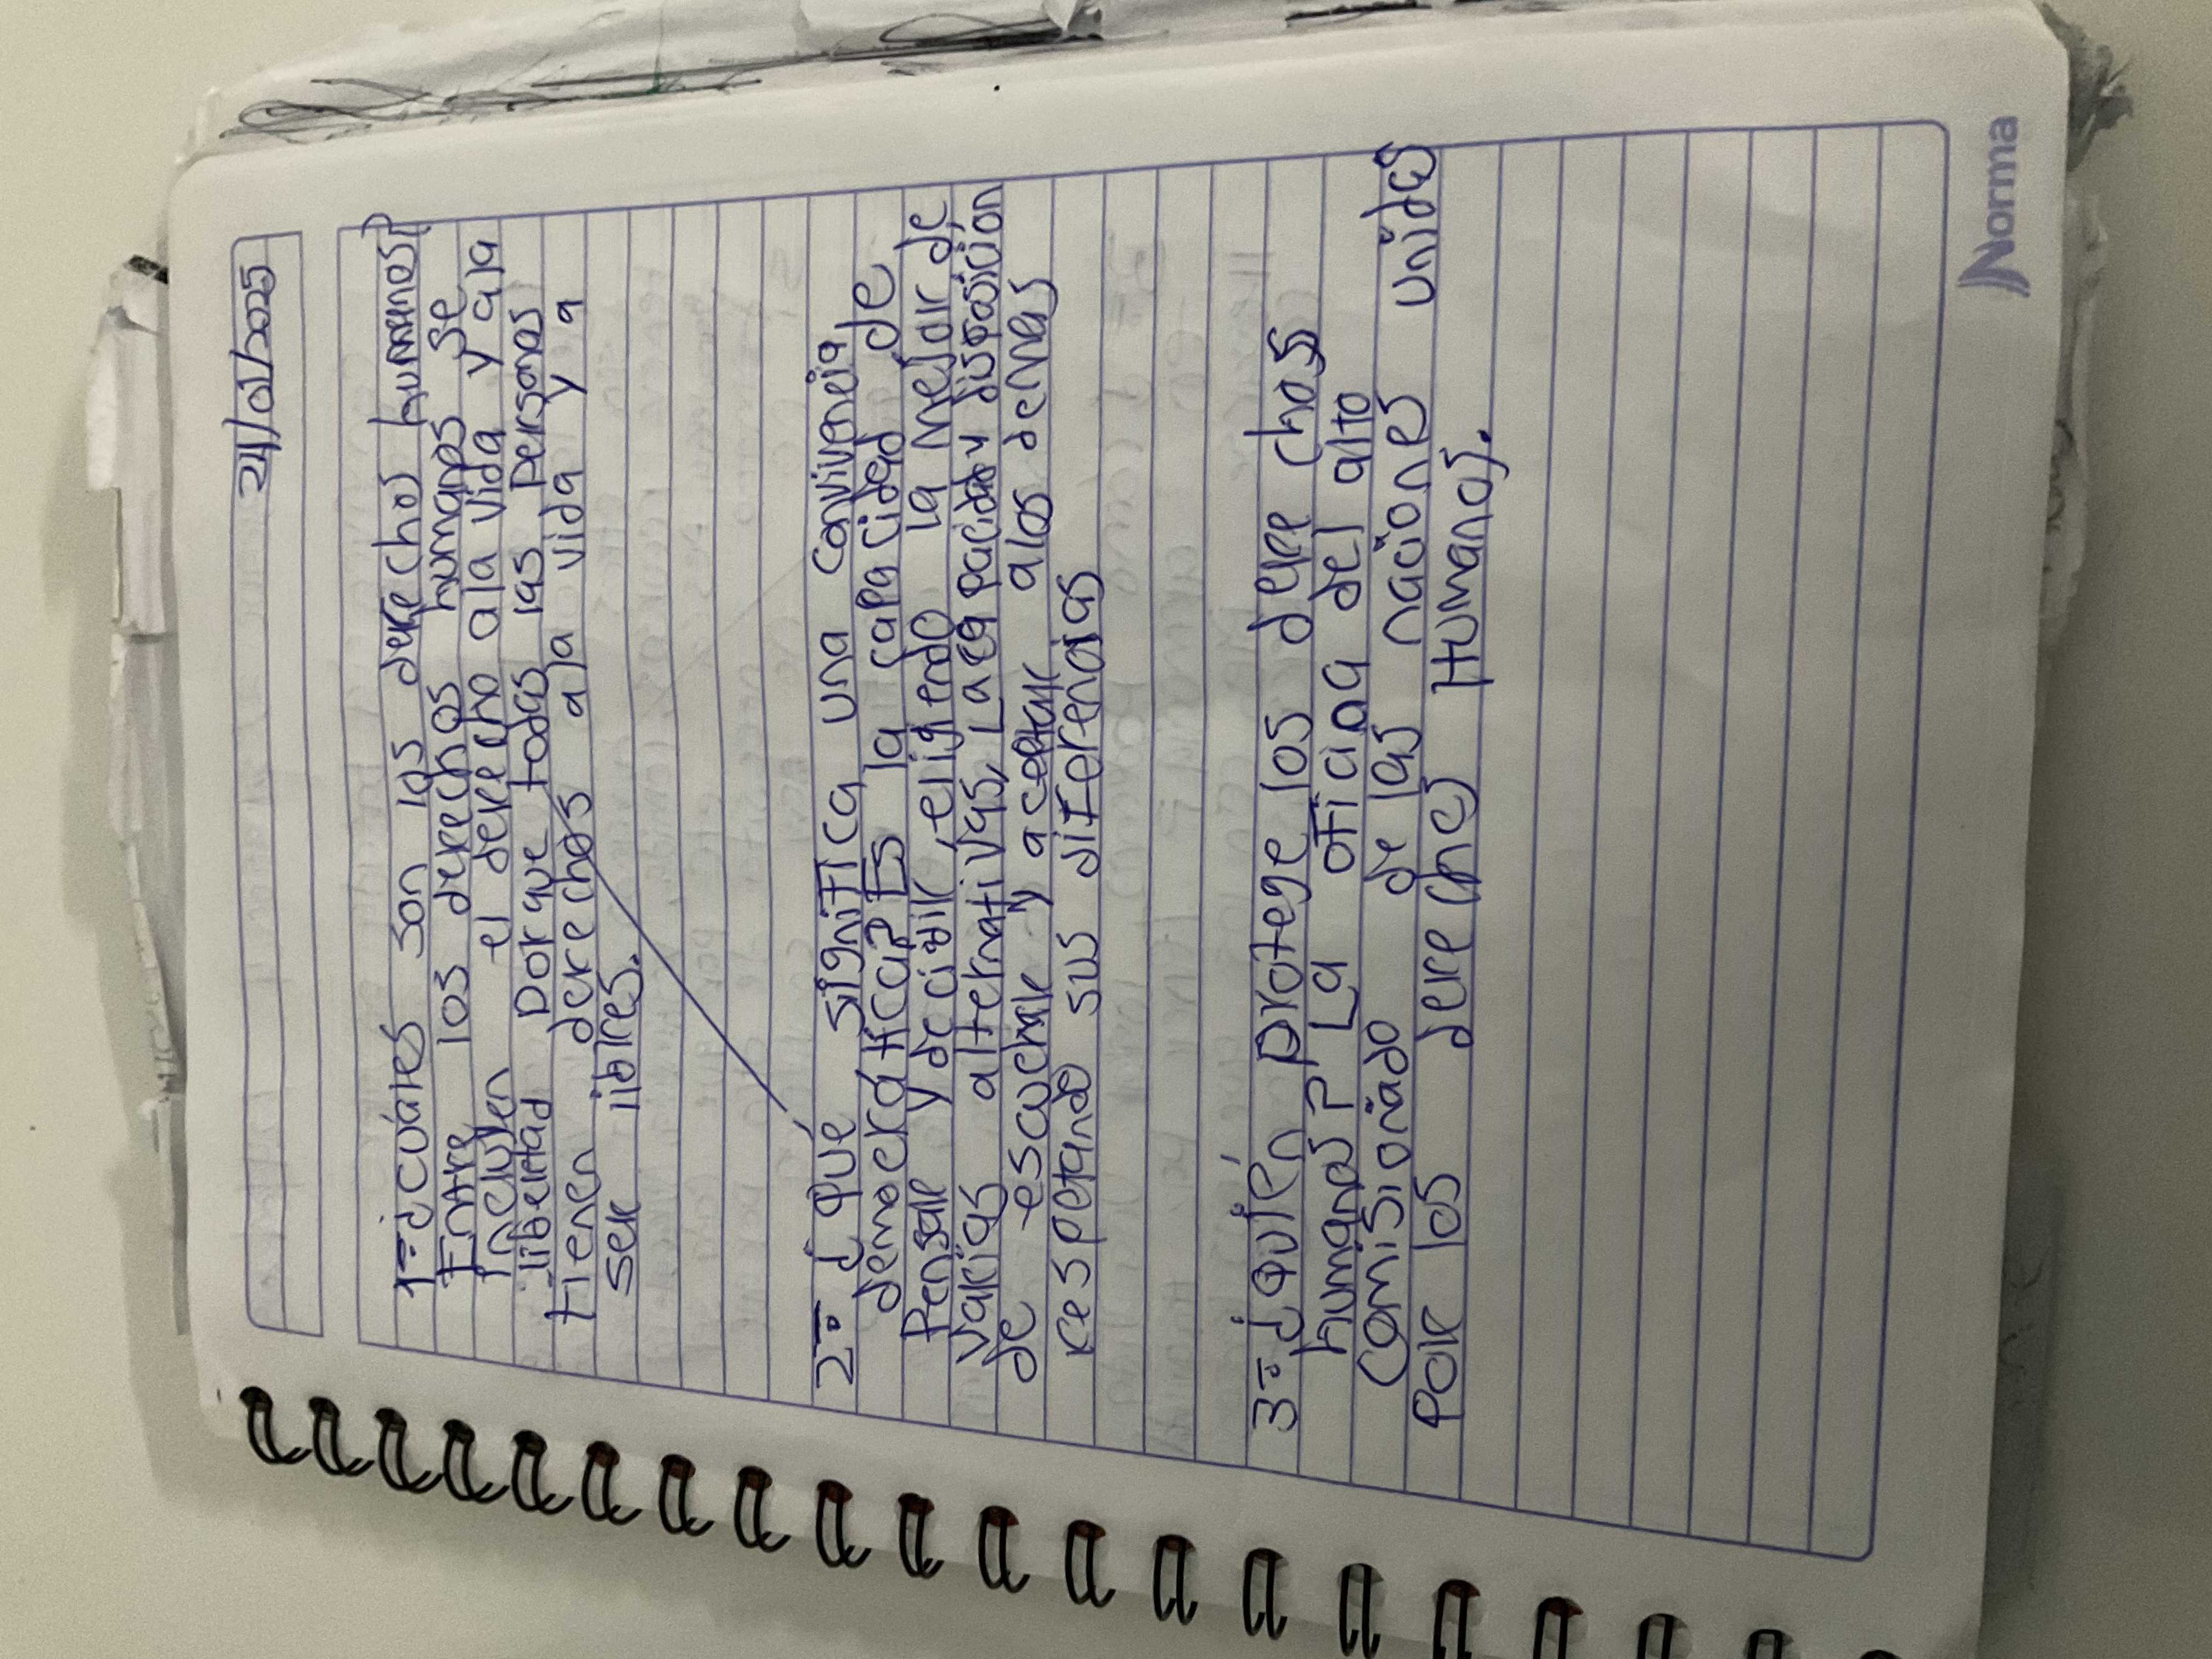 24/01/2025
1=¿cuáles son los derechos humanos?
Entre los derechos humanos se
incluyen el derecho ala vida y ala
libertad porque todas las personas
tienen derechos a la vida y a
ser libres.
2= ¿Qué significa una convivencia
democrática? Es la capacidad de
Pensar y decidir, eligiendo la mejor de
varias alternativas, La capacidad y disposición
de escuchar y aceptar alos demas
respetando sus diferencias
3=¿Quién protege los derechos
humanos? La oficina del alto
comisionado de las naciones unidas
por los derechos Humanos.
Norma